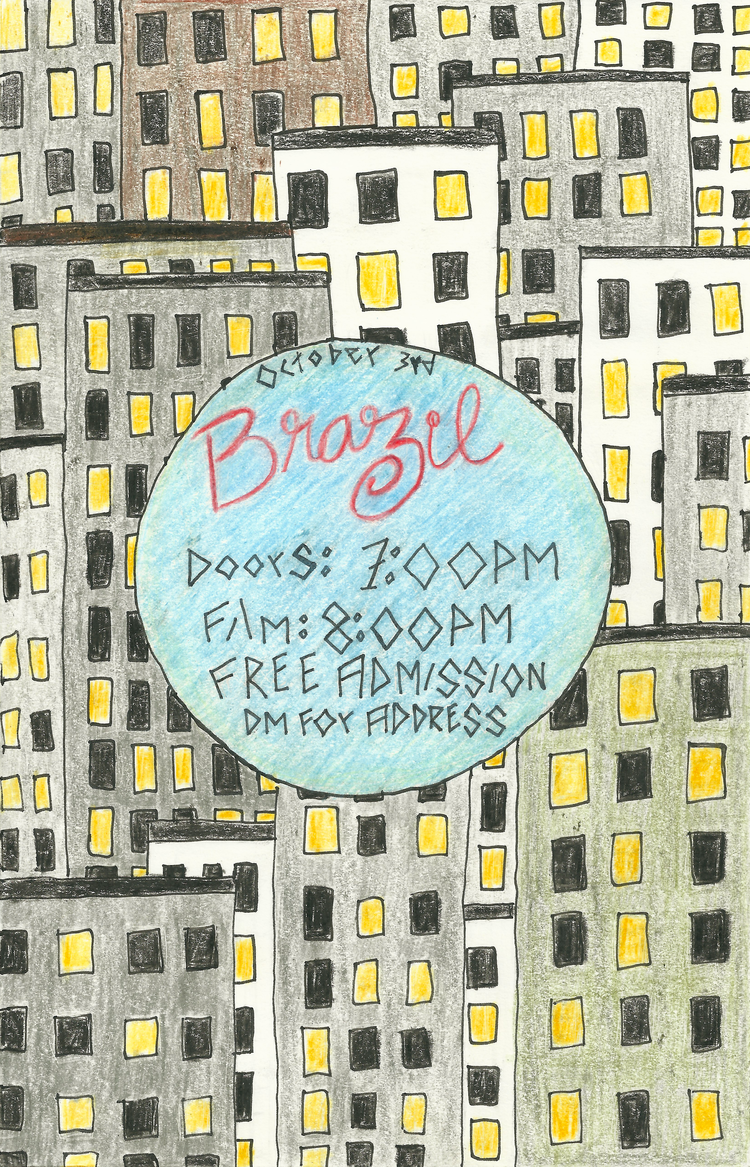 October 3rd
Brazil
Doors: 7:00PM
Film: 8:00PM
FREE ADMISSION
DM FOr ADDRESS